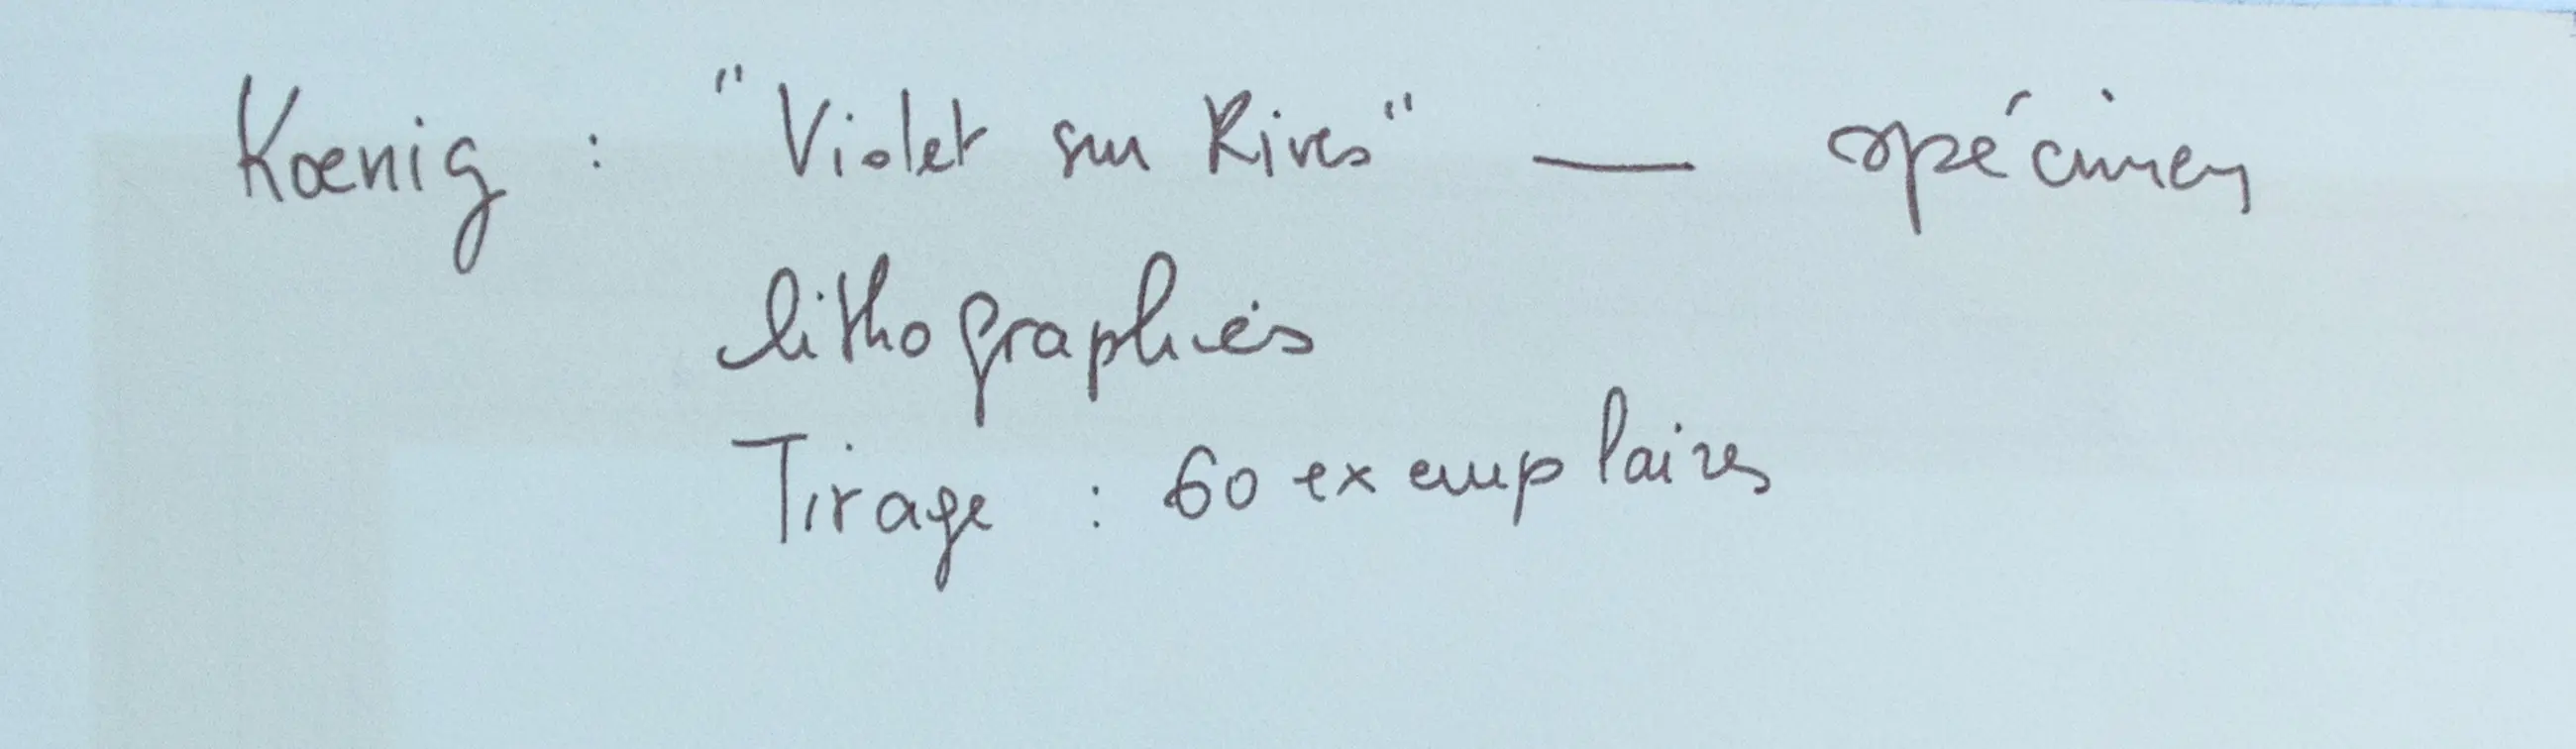 Kœnig : "Violet sur Rives" — spécimen
lithographies
Tirage : 60 exemplaires